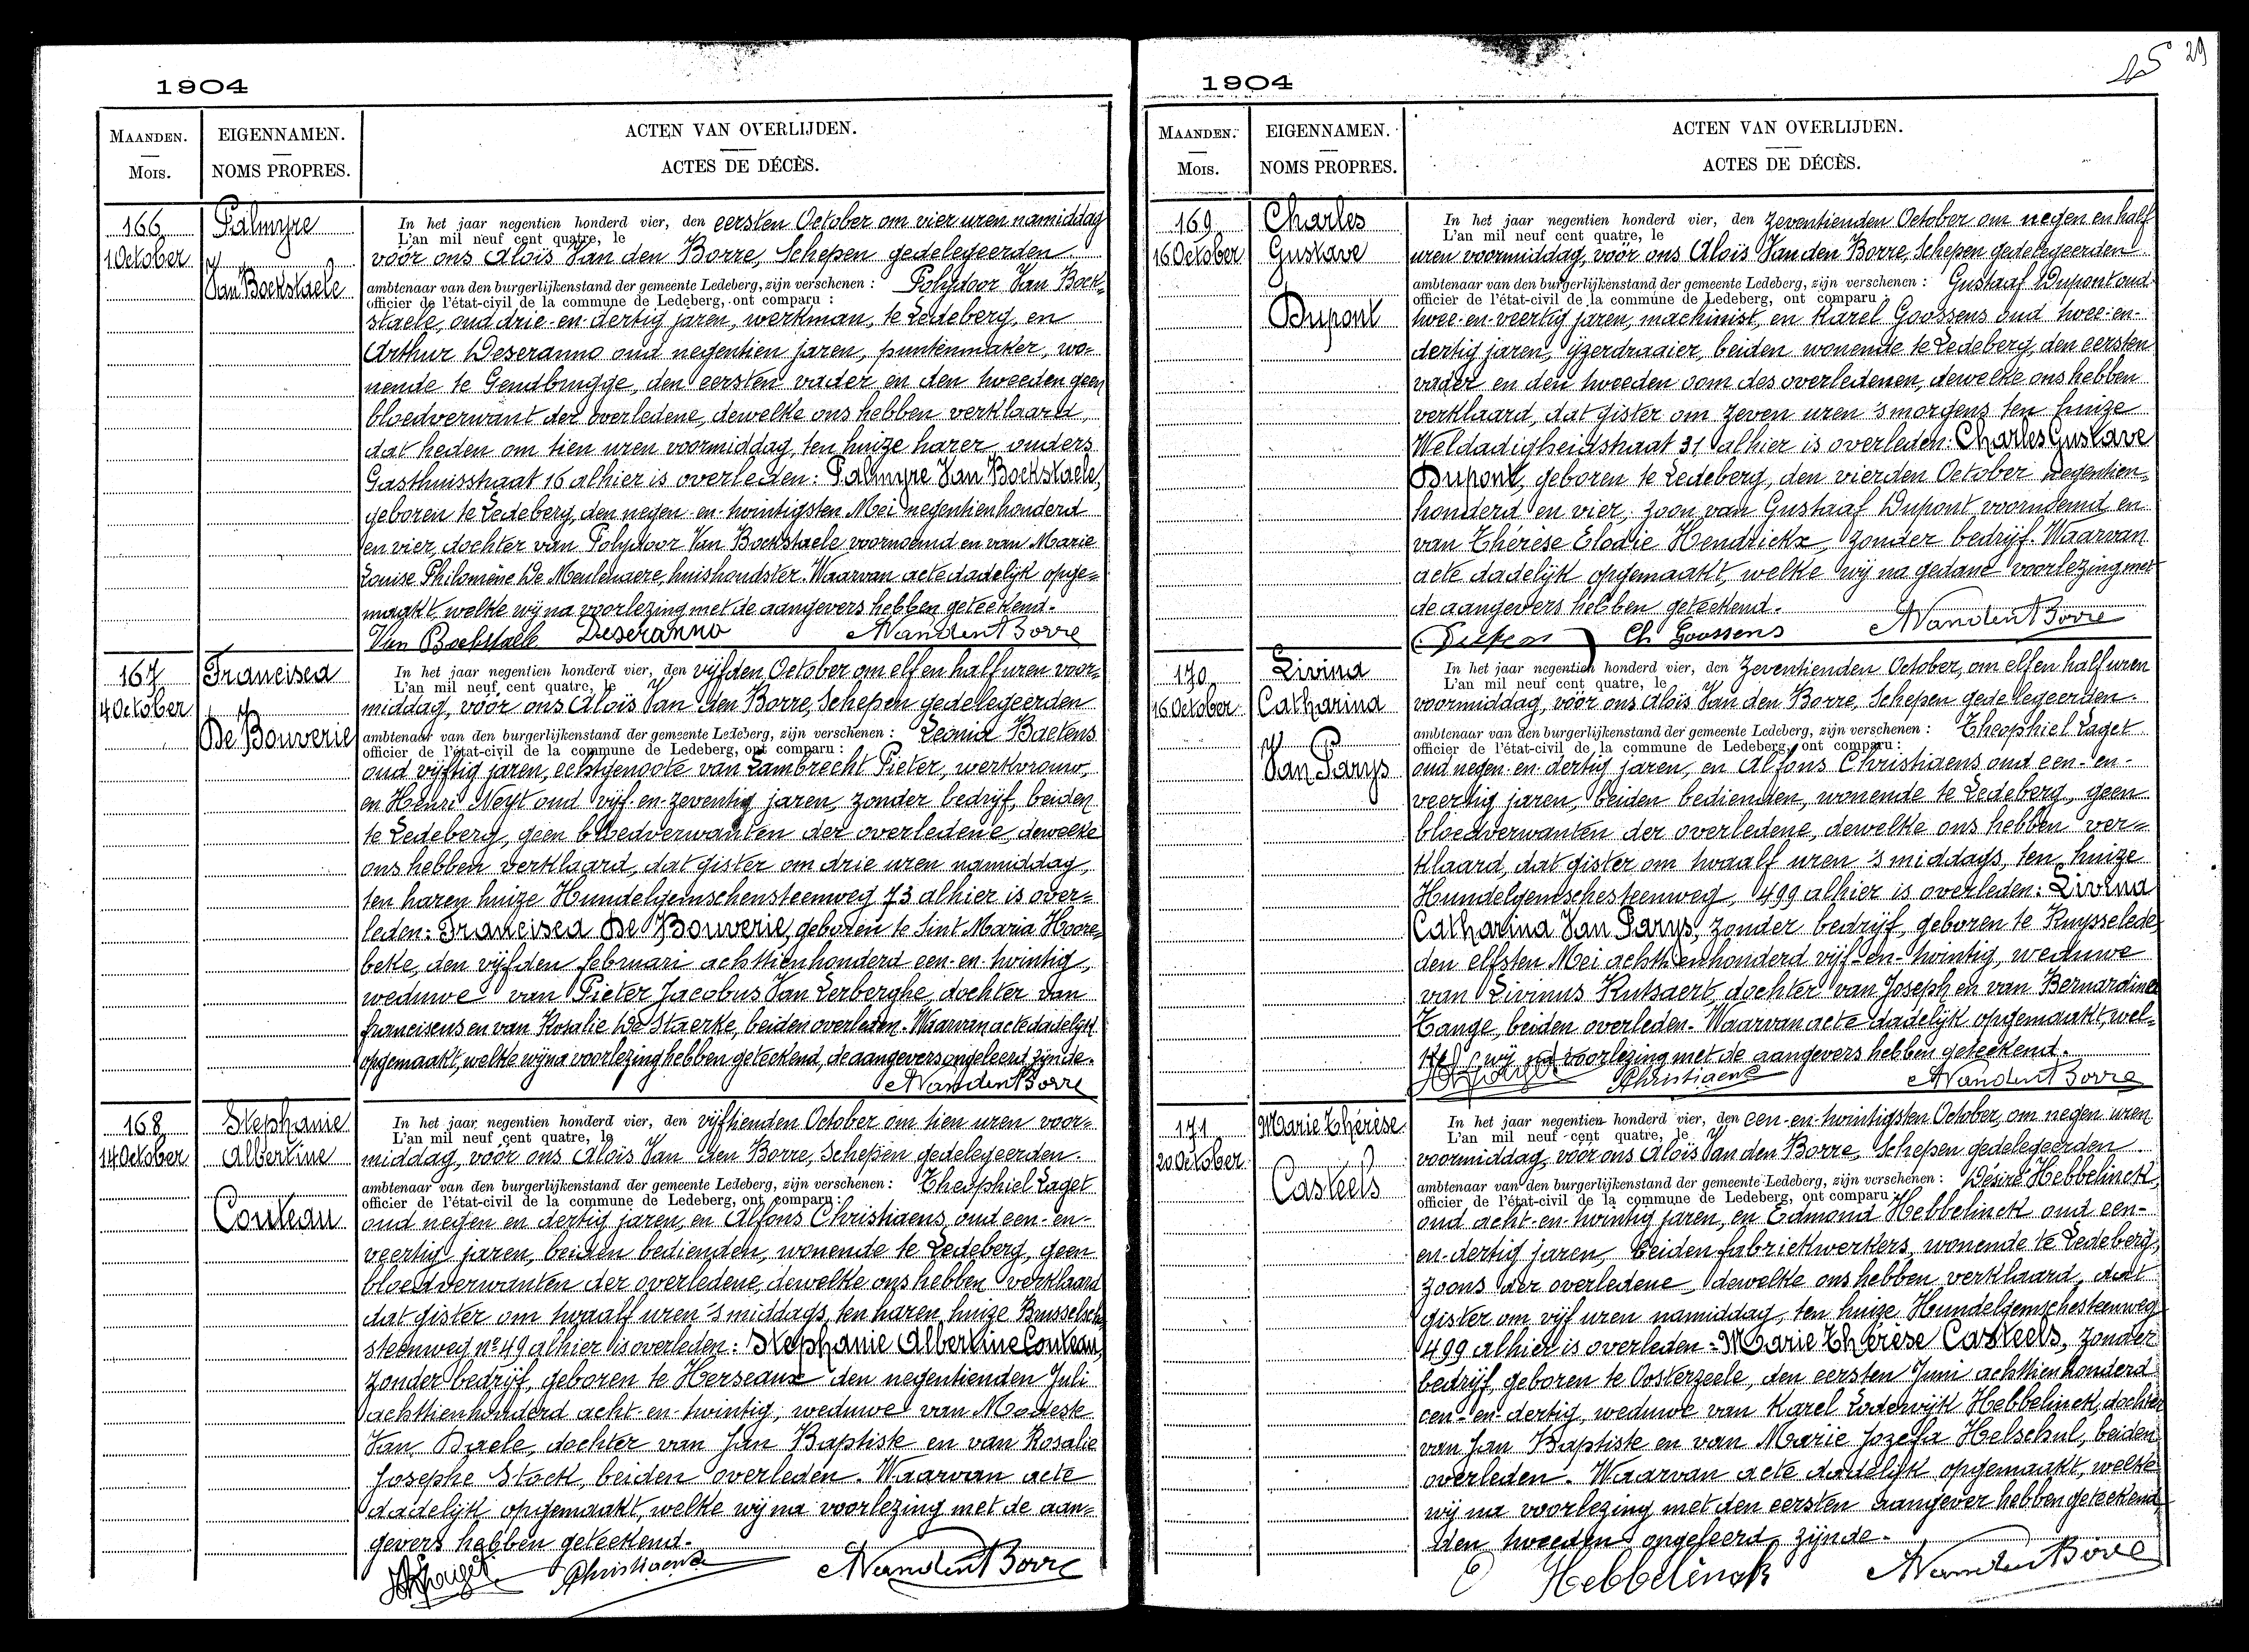 1904
MAANDEN.
Mois.
EIGENNAMEN.
NOMS PROPRES.
ACTEN VAN OVERLIJDEN.
ACTES DE DÉCÈS.
166
1 October
Palmyre
Van Bockstaele
In het jaar negentien honderd vier, den eersten October om vier uren namiddag
L'an mil neuf cent quatre, le
vóór ons Aloïs Van den Borre, Schepen gedelegeerden
ambtenaar van den burgerlijkenstand der gemeente Ledeberg, zijn verschenen : Polydoor Van Bock-
officier de l'état-civil de la commune de Ledeberg, ont comparu :
staele, oud drie-en-dertig jaren, werkman, te Ledeberg, en
Arthur Deseranno oud negentien jaren, puntenmaker, wo-
nende te Gendbrugge, den eersten vader en den tweeden geen
bloedverwant der overledene, dewelke ons hebben verklaard,
dat heden om tien uren voormiddag, ten huize harer ouders
Gasthuisstraat 16 alhier is overleden : Palmyre Van Bockstaele,
geboren te Ledeberg, den negen-en-twintigsten Mei negentienhonderd
en vier, dochter van Polydoor Van Bockstaele voornoemd en van Marie
Louise Philomène De Meulenaere, huishoudster. Waarvan acte dadelijk opge-
maakt, welke wij na voorlezing met de aangevers hebben geteekend.
Van Bockstaele Deseranno AVandenBorre
167
4 October
Francisca
De Bouverie
In het jaar negentien honderd vier, den vijfden October om elf en half uren voor-
L'an mil neuf cent quatre, le
middag, vóór ons Aloïs Van den Borre, Schepen gedelegeerden
ambtenaar van den burgerlijkenstand der gemeente Ledeberg, zijn verschenen : Leonia Baetens
officier de l'état-civil de la commune de Ledeberg, ont comparu :
oud vijftig jaren, echtgenoote van Lambrecht Pieter, werkvrouw,
en Henri Neyt oud vijf-en-zeventig jaren, zonder bedrijf, beiden
te Ledeberg, geen bloedverwanten der overledene, dewelke
ons hebben verklaard, dat gister om drie uren namiddag,
ten haren huize Hundelgemschensteenweg 73 alhier is over-
leden : Francisca De Bouverie, geboren te Sint Maria Hoore-
beke, den vijfden februari achttienhonderd een-en-twintig,
weduwe van Pieter Jacobus Van Lerberghe, dochter van
franciscus en van Rosalie De Staerke, beiden overleden. Waarvan acte dadelijk
opgemaakt, welke wij na voorlezing hebben geteekend, de aangevers ongeleerd zijnde.
AVandenBorre
168
14 October
Stephanie
Albertine
Couteau
In het jaar negentien honderd vier, den vijftienden October om tien uren voor-
L'an mil neuf cent quatre, le
middag, vóór ons Aloïs Van den Borre, Schepen gedelegeerden
ambtenaar van den burgerlijkenstand der gemeente Ledeberg, zijn verschenen : Theophiel Laget
officier de l'état-civil de la commune de Ledeberg, ont comparu :
oud negen en dertig jaren, en Alfons Christiaens, oud een-en-
veertig jaren, beiden bedienden, wonende te Ledeberg, geen
bloedverwanten der overledene, dewelke ons hebben verklaard
dat gister om twaalf uren 's middags, ten haren huize Brusselsche
steenweg nº 49 alhier is overleden : Stephanie Albertine Couteau,
zonder bedrijf, geboren te Herseaux den negentienden Juli
achttienhonderd acht-en-twintig, weduwe van Modeste
Van Daele, dochter van Jan Baptiste en van Rosalie
Josephe Stock, beiden overleden. Waarvan acte
dadelijk opgemaakt, welke wij na voorlezing met de aan-
gevers hebben geteekend.
AChristiaens AVandenBorre
1904
29
MAANDEN.
Mois.
EIGENNAMEN.
NOMS PROPRES.
ACTEN VAN OVERLIJDEN.
ACTES DE DÉCÈS.
169
16 October
Charles
Gustave
Dupont
In het jaar negentien honderd vier, den zeventienden October om negen en half
L'an mil neuf cent quatre, le
uren voormiddag, vóór ons Aloïs Van den Borre, Schepen gedelegeerden
ambtenaar van den burgerlijkenstand der gemeente Ledeberg, zijn verschenen : Gustaaf Dupont oud
officier de l'état-civil de la commune de Ledeberg, ont comparu :
twee-en-veertig jaren, machinist, en Karel Goossens oud twee-en-
dertig jaren, ijzerdraaier, beiden wonende te Ledeberg, den eersten
vader en den tweeden oom des overledenen, dewelke ons hebben
verklaard, dat gister om zeven uren 's morgens ten huize
Weldadigheidstraat 31 alhier is overleden : Charles Gustave
Dupont, geboren te Ledeberg, den vierden October negentien-
honderd en vier, zoon van Gustaaf Dupont voornoemd en
van Thérèse Elodie Hendrickx, zonder bedrijf. Waarvan
acte dadelijk opgemaakt, welke wij na gedane voorlezing met
de aangevers hebben geteekend.
Ch Goossens AVandenBorre
170
16 October
Livina
Catharina
Van Parys
In het jaar negentien honderd vier, den zeventienden October, om elf en half uren
L'an mil neuf cent quatre, le
voormiddag, vóór ons Aloïs Van den Borre, Schepen gedelegeerden
ambtenaar van den burgerlijkenstand der gemeente Ledeberg, zijn verschenen : Theophiel Laget
officier de l'état-civil de la commune de Ledeberg, ont comparu :
oud negen-en-dertig jaren, en Alfons Christiaens oud een-en-
veertig jaren, beiden bedienden, wonende te Ledeberg, geen
bloedverwanten der overledene, dewelke ons hebben ver-
klaard, dat gister om twaalf uren 's middags, ten huize
Hundelgemschesteenweg, 499 alhier is overleden : Livina
Catharina Van Parys, zonder bedrijf, geboren te Ruysselede,
den elfsten Mei achttienhonderd vijf-en-twintig, weduwe
van Livinus Rutsaert, dochter van Joseph en van Bernardina
Tange, beiden overleden. Waarvan acte dadelijk opgemaakt, wel-
ke wij na voorlezing met de aangevers hebben geteekend.
AChristiaens AVandenBorre
171
20 October
Marie Thérèse
Casteels
In het jaar negentien honderd vier, den een-en-twintigsten October, om negen uren
L'an mil neuf cent quatre, le
voormiddag, vóór ons Aloïs Van den Borre, Schepen gedelegeerden
ambtenaar van den burgerlijkenstand der gemeente Ledeberg, zijn verschenen : Désiré Hebbelinck,
officier de l'état-civil de la commune de Ledeberg, ont comparu :
oud acht-en-twintig jaren, en Edmond Hebbelinck oud een-
en-dertig jaren, beiden fabriekwerkers, wonende te Ledeberg,
zoons der overledene, dewelke ons hebben verklaard, dat
gister om vijf uren namiddag, ten huize Hundelgemschesteenweg
499 alhier is overleden : Marie Thérèse Casteels, zonder
bedrijf, geboren te Oosterzeele, den eersten Juni achttienhonderd
een-en-dertig, weduwe van Karel Lodewijk Hebbelinck, dochter
van Jan Baptiste en van Marie Jozefa Helschul, beiden
overleden. Waarvan acte dadelijk opgemaakt, welke
wij na voorlezing met den eersten aangever hebben geteekend,
den tweeden ongeleerd zijnde.
Hebbelinck AVandenBorre